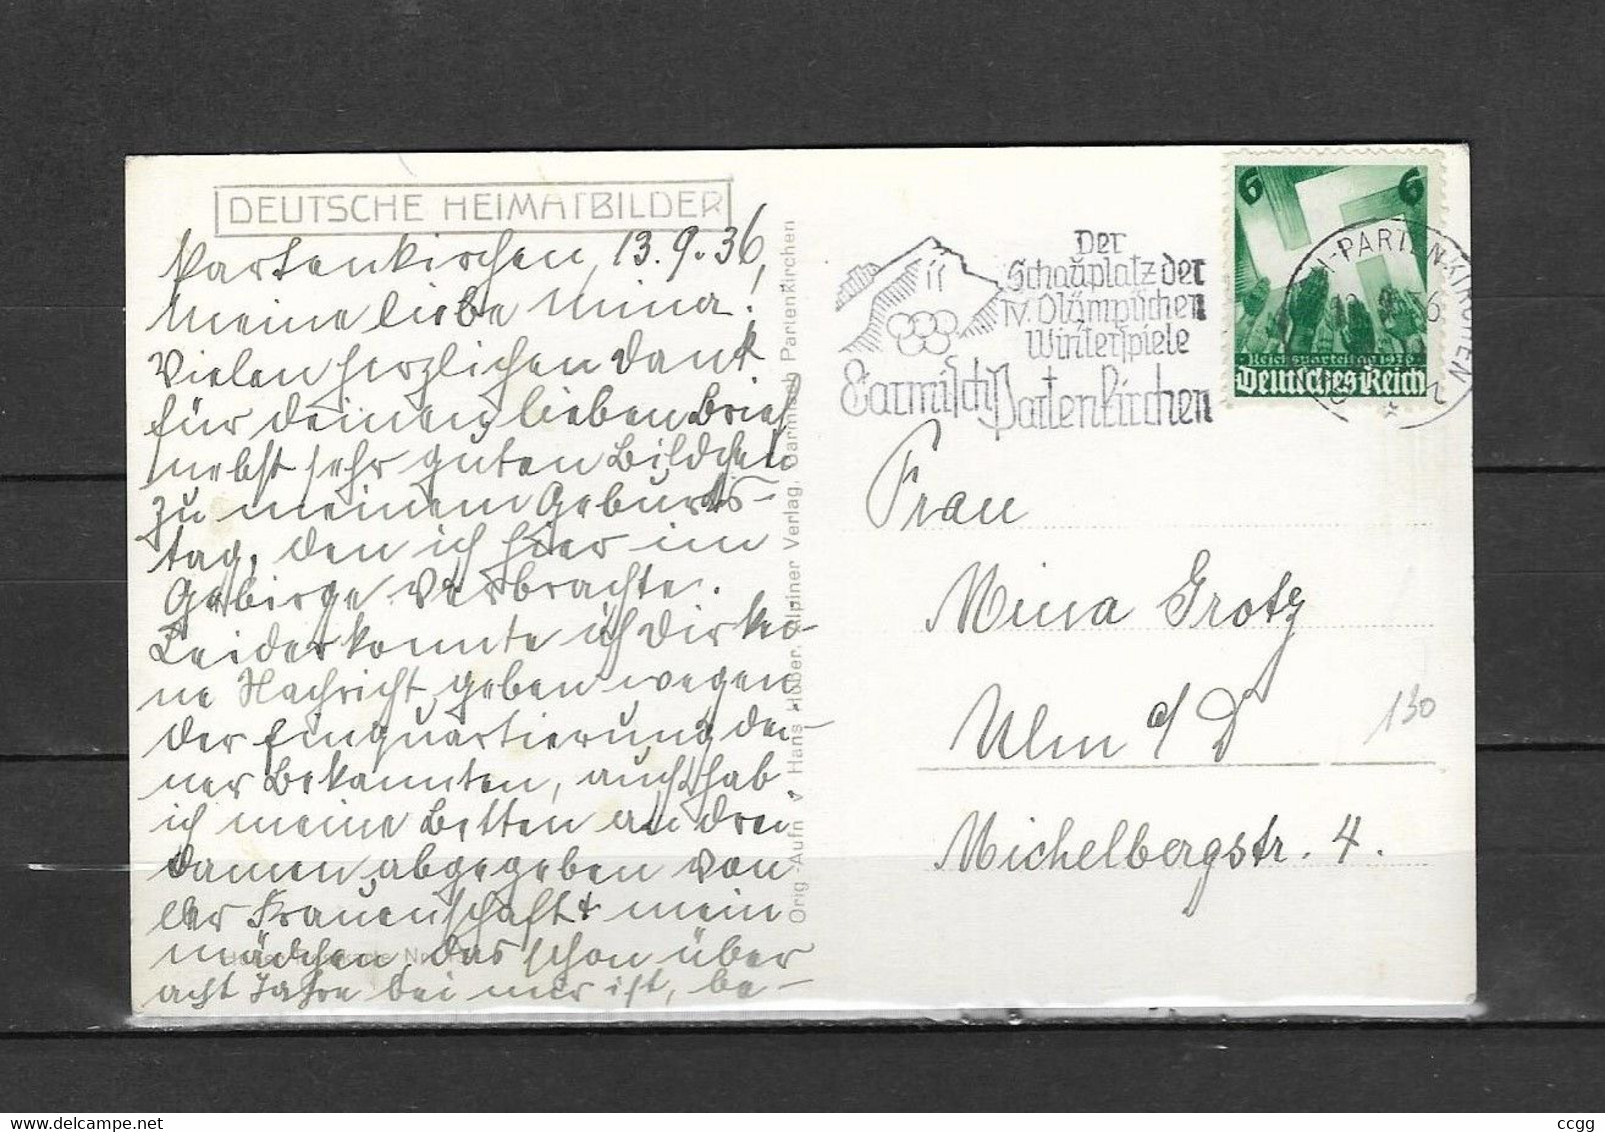 DEUTSCHE HEIMATBILDER
Partenkirchen, 13.9.36,
Meine liebe Mina!
Vielen herzlichen Dank
für deinen lieben Brief
nebst sehr guten Bildchen
zu meinem Geburts-
tag, den ich hier im
Gebirge verbrachte.
Leider konnte ich dir kei-
ne Nachricht geben wegen
der Einquartierung dei-
ner Bekannten, auch hab
ich meine Betten an drei
Damen abgegeben von
der Frauenschaft + mein
Mädchen, das schon über
acht Jahre bei mir ist, be-
Orig.-Aufn. v. Hans Huber, Alpiner Verlag, Garmisch Partenkirchen
Der
Schauplatz der
IV. Olümpischen
Winterspiele
Garmisch Partenkirchen
6 6
Reichsparteitag 1936
Deutsches Reich
N-PARTENKIRCHEN
Frau
Mina Grotz
Ulm a/D
130
Michelbergstr. 4.
ccgg